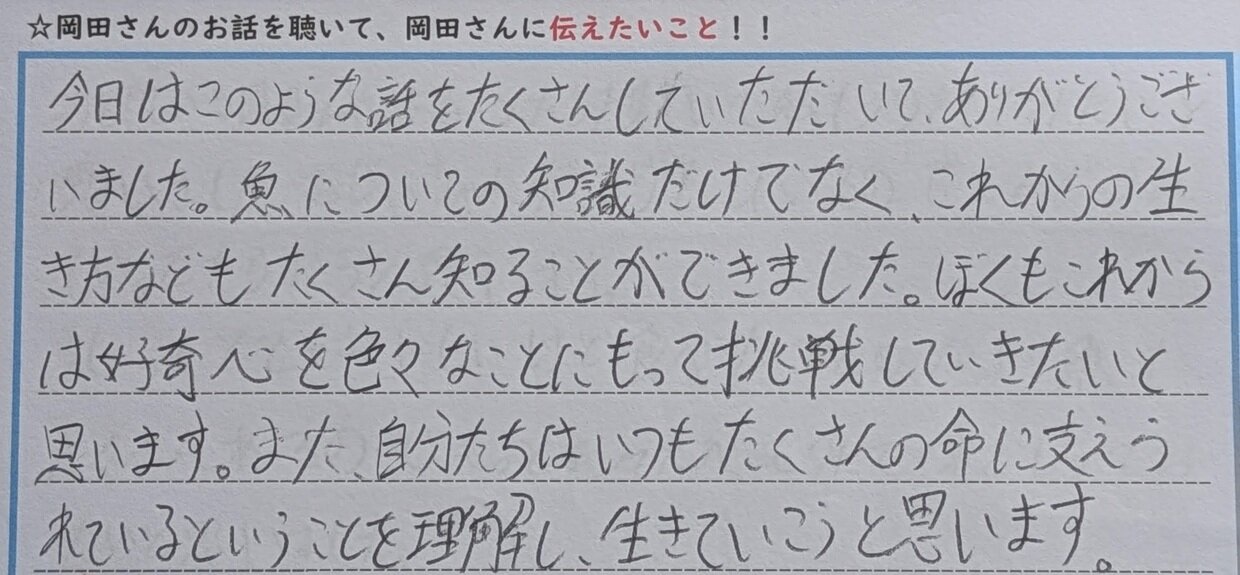 ☆岡田さんのお話を聴いて、岡田さんに伝えたいこと！！
今日はこのような話をたくさんしていただいて、ありがとうござ
いました。魚についての知識だけでなく、これからの生
き方などもたくさん知ることができました。ぼくもこれから
は好奇心を色々なことにもって挑戦していきたいと
思います。また、自分たちはいつもたくさんの命に支えら
れているということを理解し、生きていこうと思います。